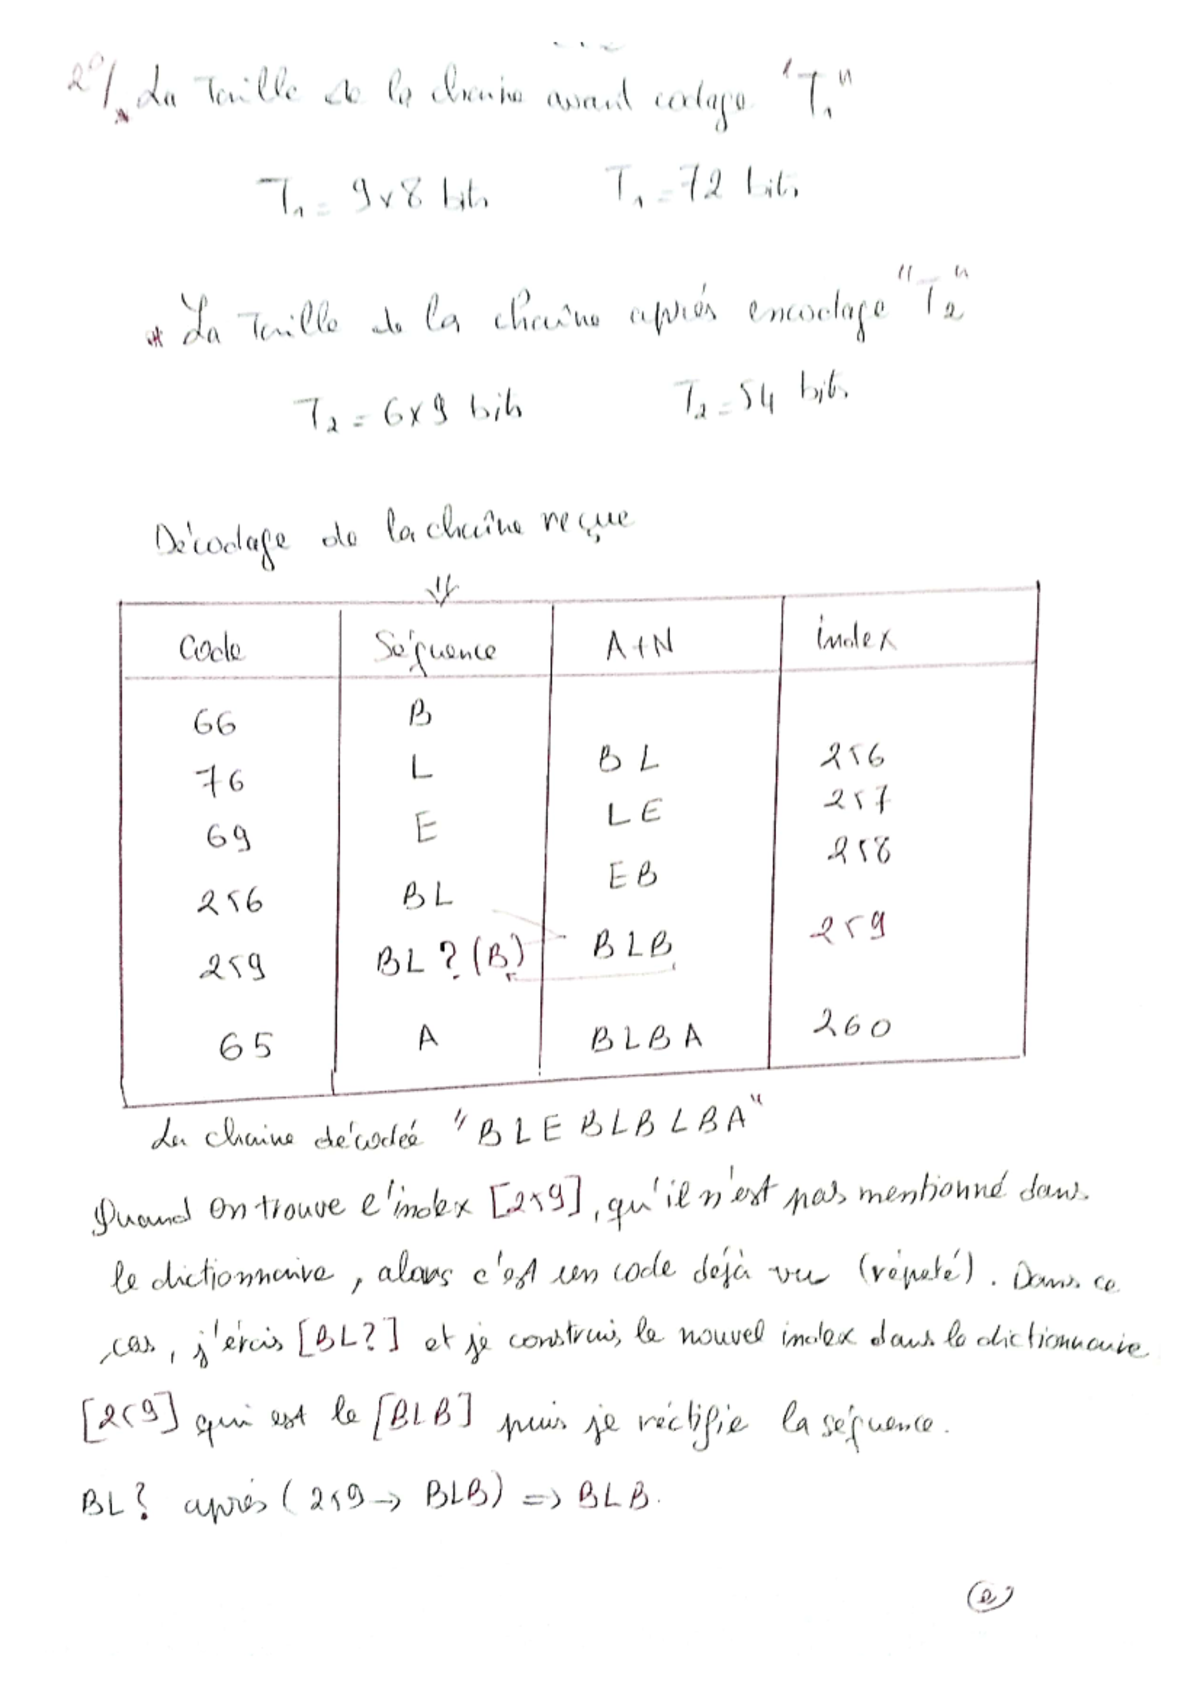 2°/. La Taille de la chaine avant codage "T1"
T1 = 9x8 bits T1 = 72 bits
* La Taille de la chaîne après encodage "T2"
T2 = 6x9 bits T2 = 54 bits
Décodage de la chaîne reçue
Code Séquence A+N index
66 B
76 L BL 256
69 E LE 257
256 BL EB 258
259 BL ? (B) BLB 259
65 A BLBA 260
La chaine décodée "BLEBLBLBA"
Quand on trouve l'index [259], qu'il n'est pas mentionné dans
le dictionnaire, alors c'est un code déjà vu (répeté). Dans ce
cas, j'écris [BL?] et je construis le nouvel index dans le dictionnaire
[259] qui est le [BLB] puis je réctifie la séquence.
BL? après (259 → BLB) => BLB.
2